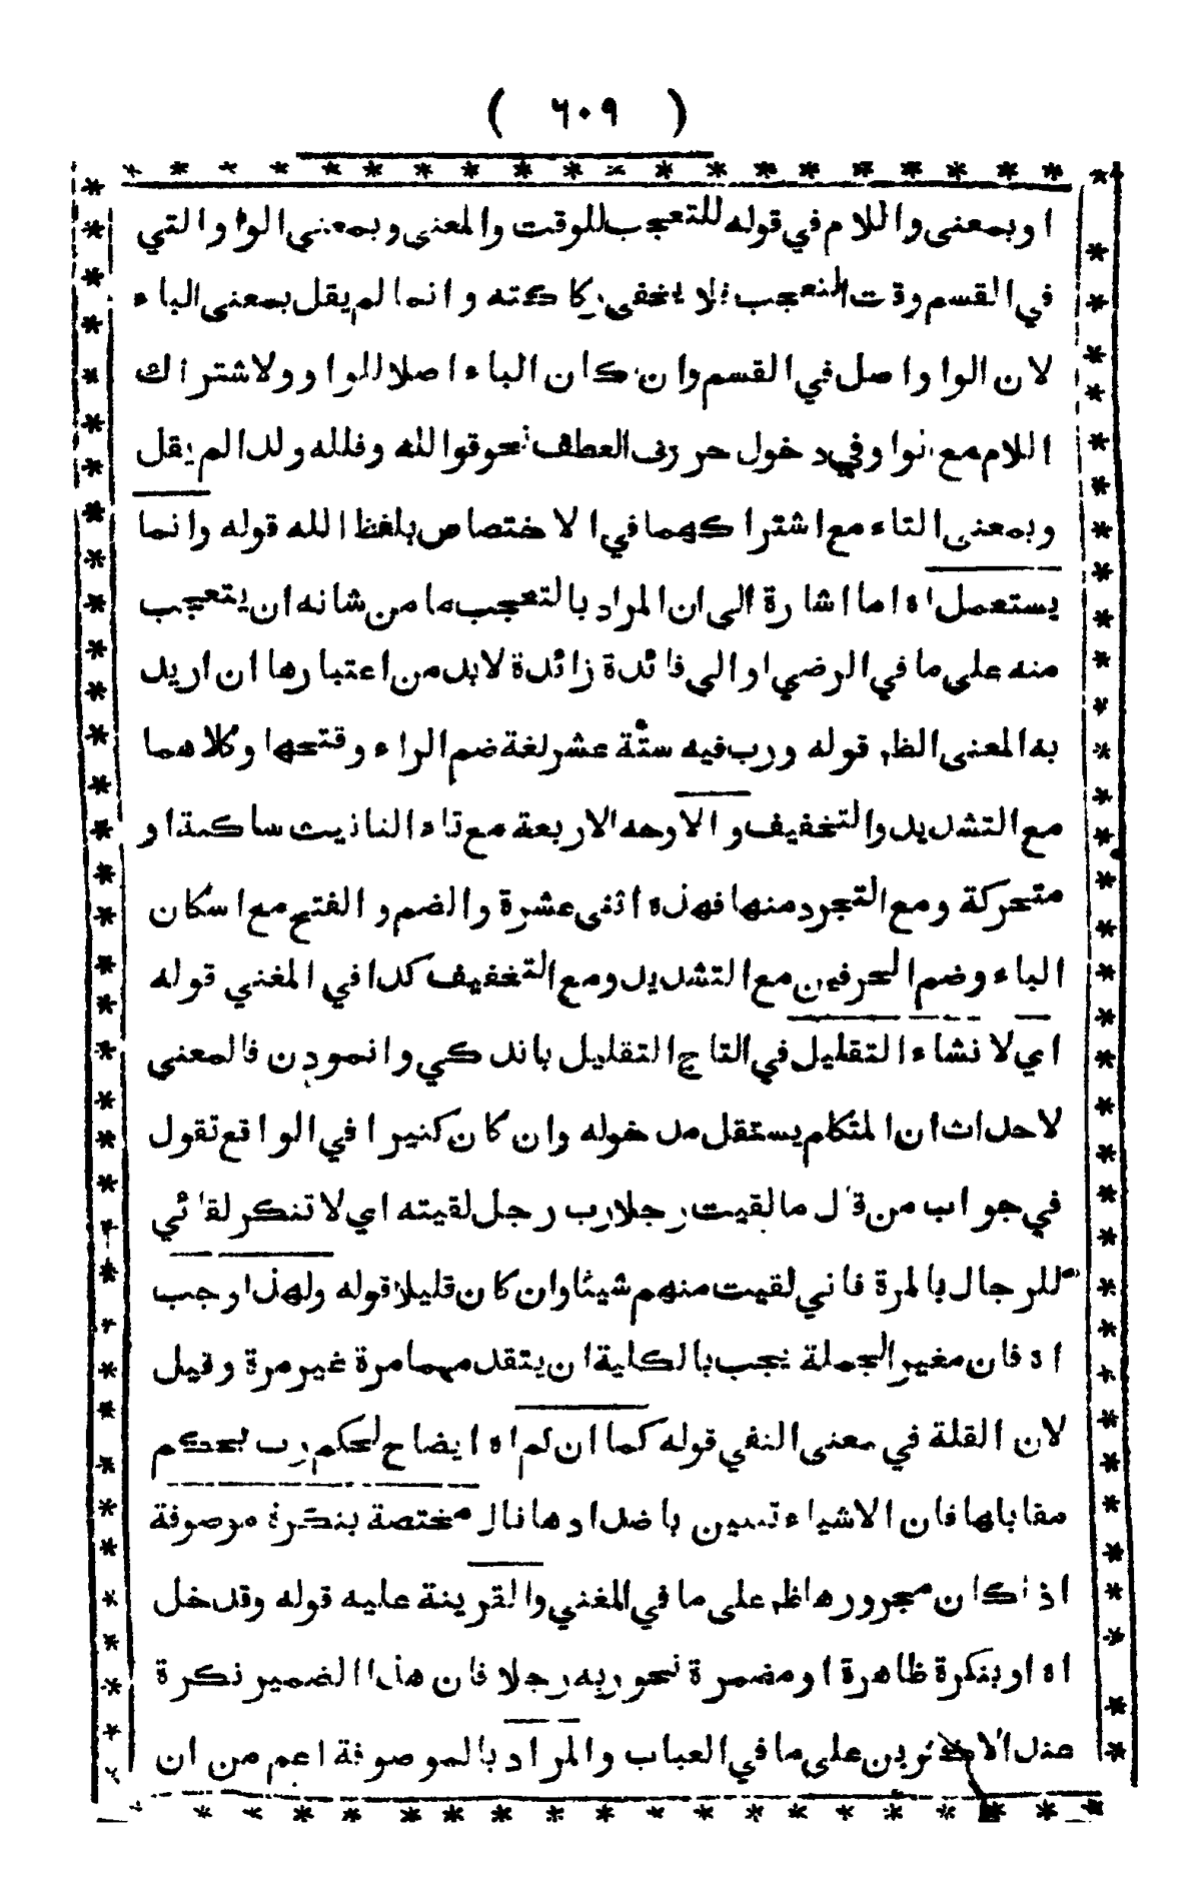 ( ٦٠٩ )
او بمعنى واللام في قوله للتعجب للوقت والمعنى وبمعنى الواو التي
في القسم وقت التعجب فلا يخفى ركاكته وانما لم يقل بمعنى الباء
لان الواو اصل في القسم وان كان الباء اصلا للواو ولاشتراك
اللام مع الواو في دخول حرفى العطف نحو قوالله وفلله ولذا لم يقل
وبمعنى التاء مع اشتراكهما في الاختصاص بلفظ الله قوله وانما
يستعمل اه اما اشارة الى ان المراد بالتعجب ما من شانه ان يتعجب
منه على ما في الرضي او الى فائدة زائدة لابد من اعتبارها ان اريد
به المعنى الظ قوله ورب فيه ستة عشر لغة ضم الراء وفتحها وكلاهما
مع التشديد والتخفيف والاوجه الاربعة مع تاء التانيث ساكنة او
متحركة ومع التجرد منها فهذه اثنى عشرة والضم والفتح مع اسكان
الباء وضم الحرفين مع التشديد ومع التخفيف كذا في المغني قوله
اي لا نشاء التقليل في التاج التقليل باندكي وانمودن فالمعنى
لاحداث ان المتكلم يستقل مدخوله وان كان كثيرا في الواقع تقول
في جواب من قال ما لقيت رجلا رب رجل لقيته اي لا تنكر لقائي
للرجال بالمرة فاني لقيت منهم شيئا وان كان قليلا قوله ولهذا وجب
اه فان مغير الجملة يجب بالكلية ان يتقدمهما مرة غير مرة وقيل
لان القلة في معنى النفي قوله كما ان لم اه ايضاح لحكم رب بحكم
مقابلها فان الاشياء تتبين باضدادها قال مختصة بنكرة موصوفة
اذا كان مجرورها ظ على ما في المغني والقرينة عليه قوله وقد دخل
اه او بنكرة ظاهرة او مضمرة نحو ربه رجلا فان هذا الضمير نكرة
عند الاكثرين على ما في العباب والمراد بالموصوفة اعم من ان